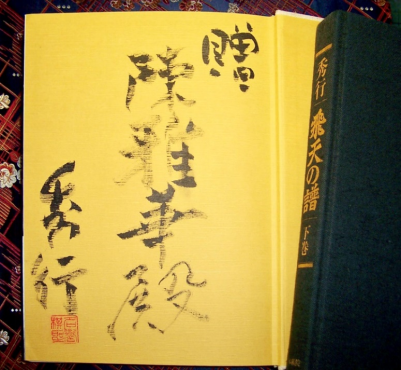 贈
陳雅華殿
秀行
秀行
飛天の譜
下巻